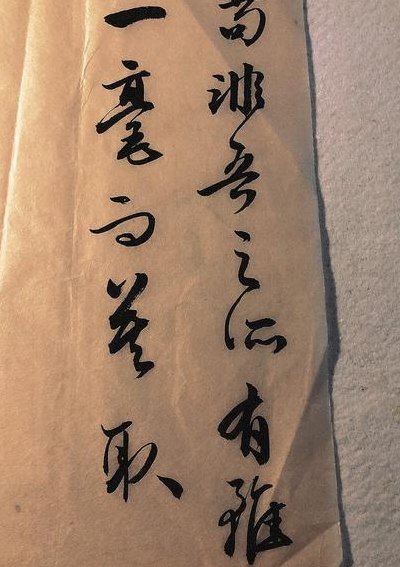 苟非吾之所有雖
一毫而莫取